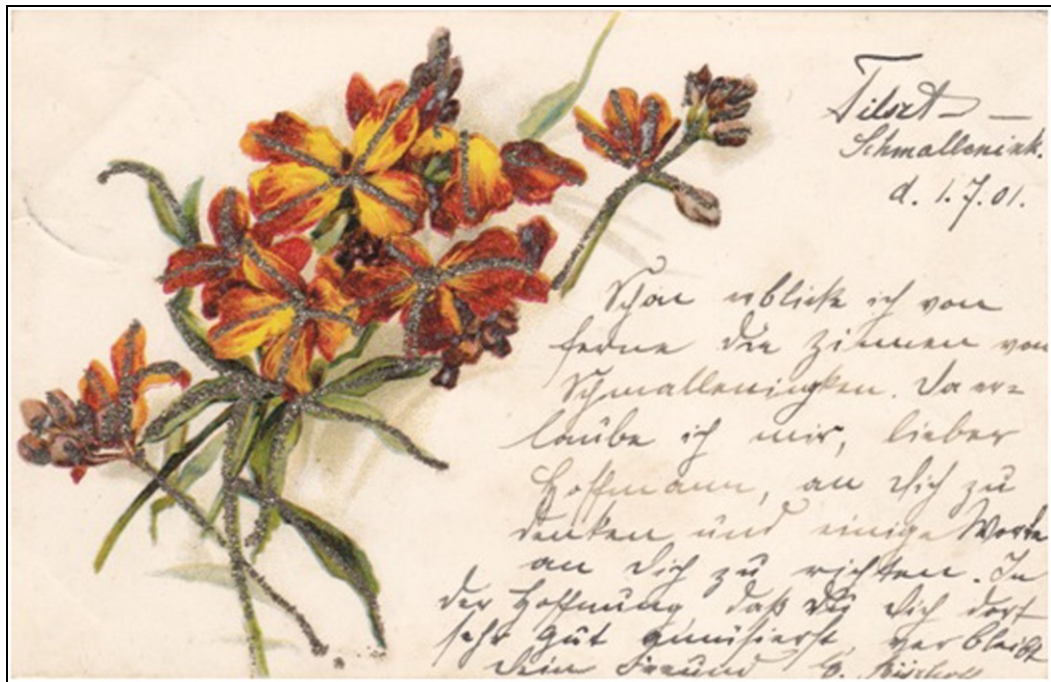 Tilsit –
Schmallenink.
d. 1.7.01.
Schon erblick ich von
ferne die Zinnen von
Schmalleningken. Da er=
laube ich mir, lieber
Hoffmann, an dich zu
denken und einige Worte
an dich zu richten. In
der Hoffnung daß du dich dort
sehr gut amüsierst, verbleibt
dein Freund